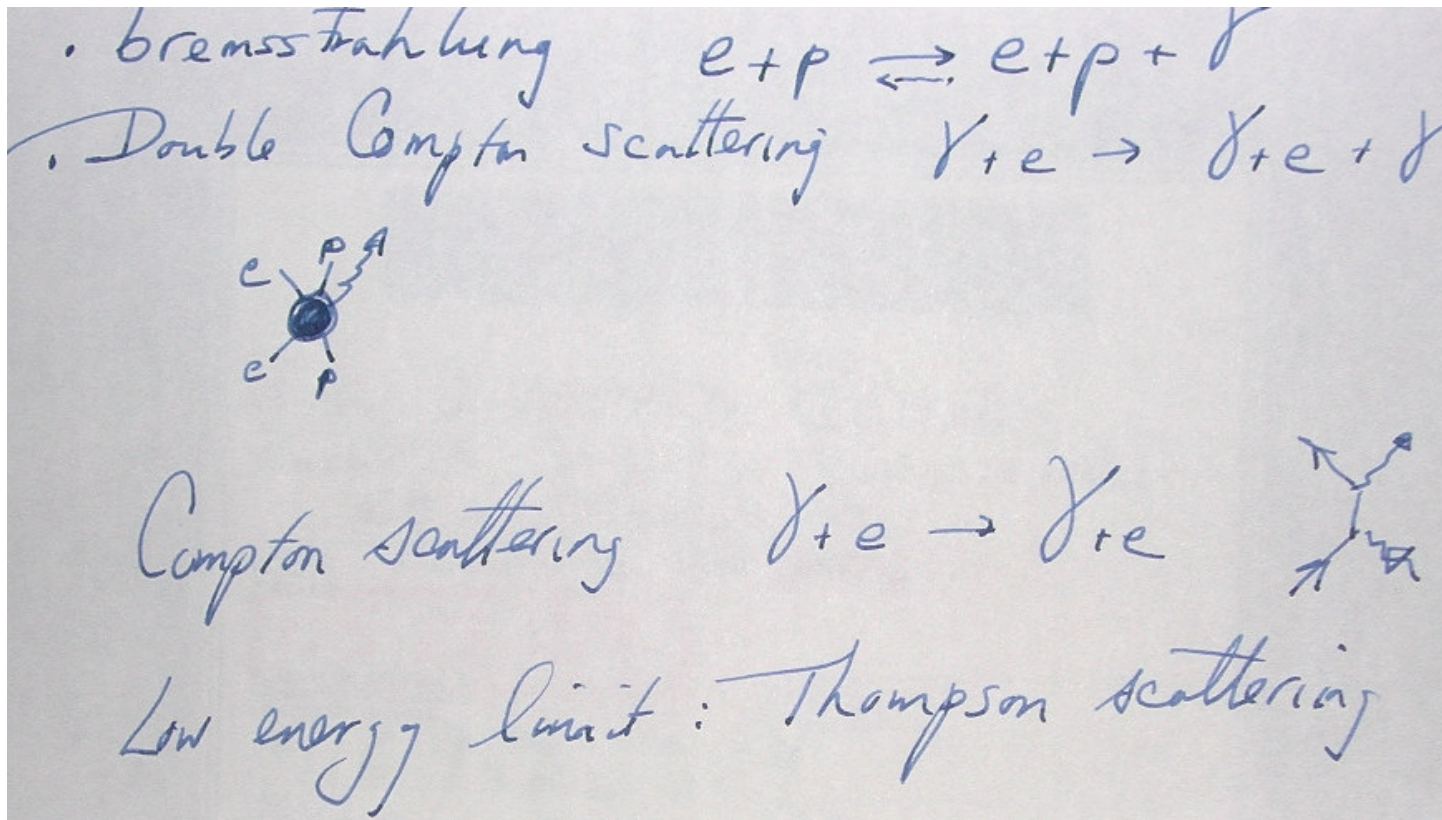 . bremsstrahlung e + p ⇌ e + p + γ
. Double Compton scattering γ + e → γ + e + γ
e p
e p
Compton scattering γ + e → γ + e
Low energy limit : Thompson scattering